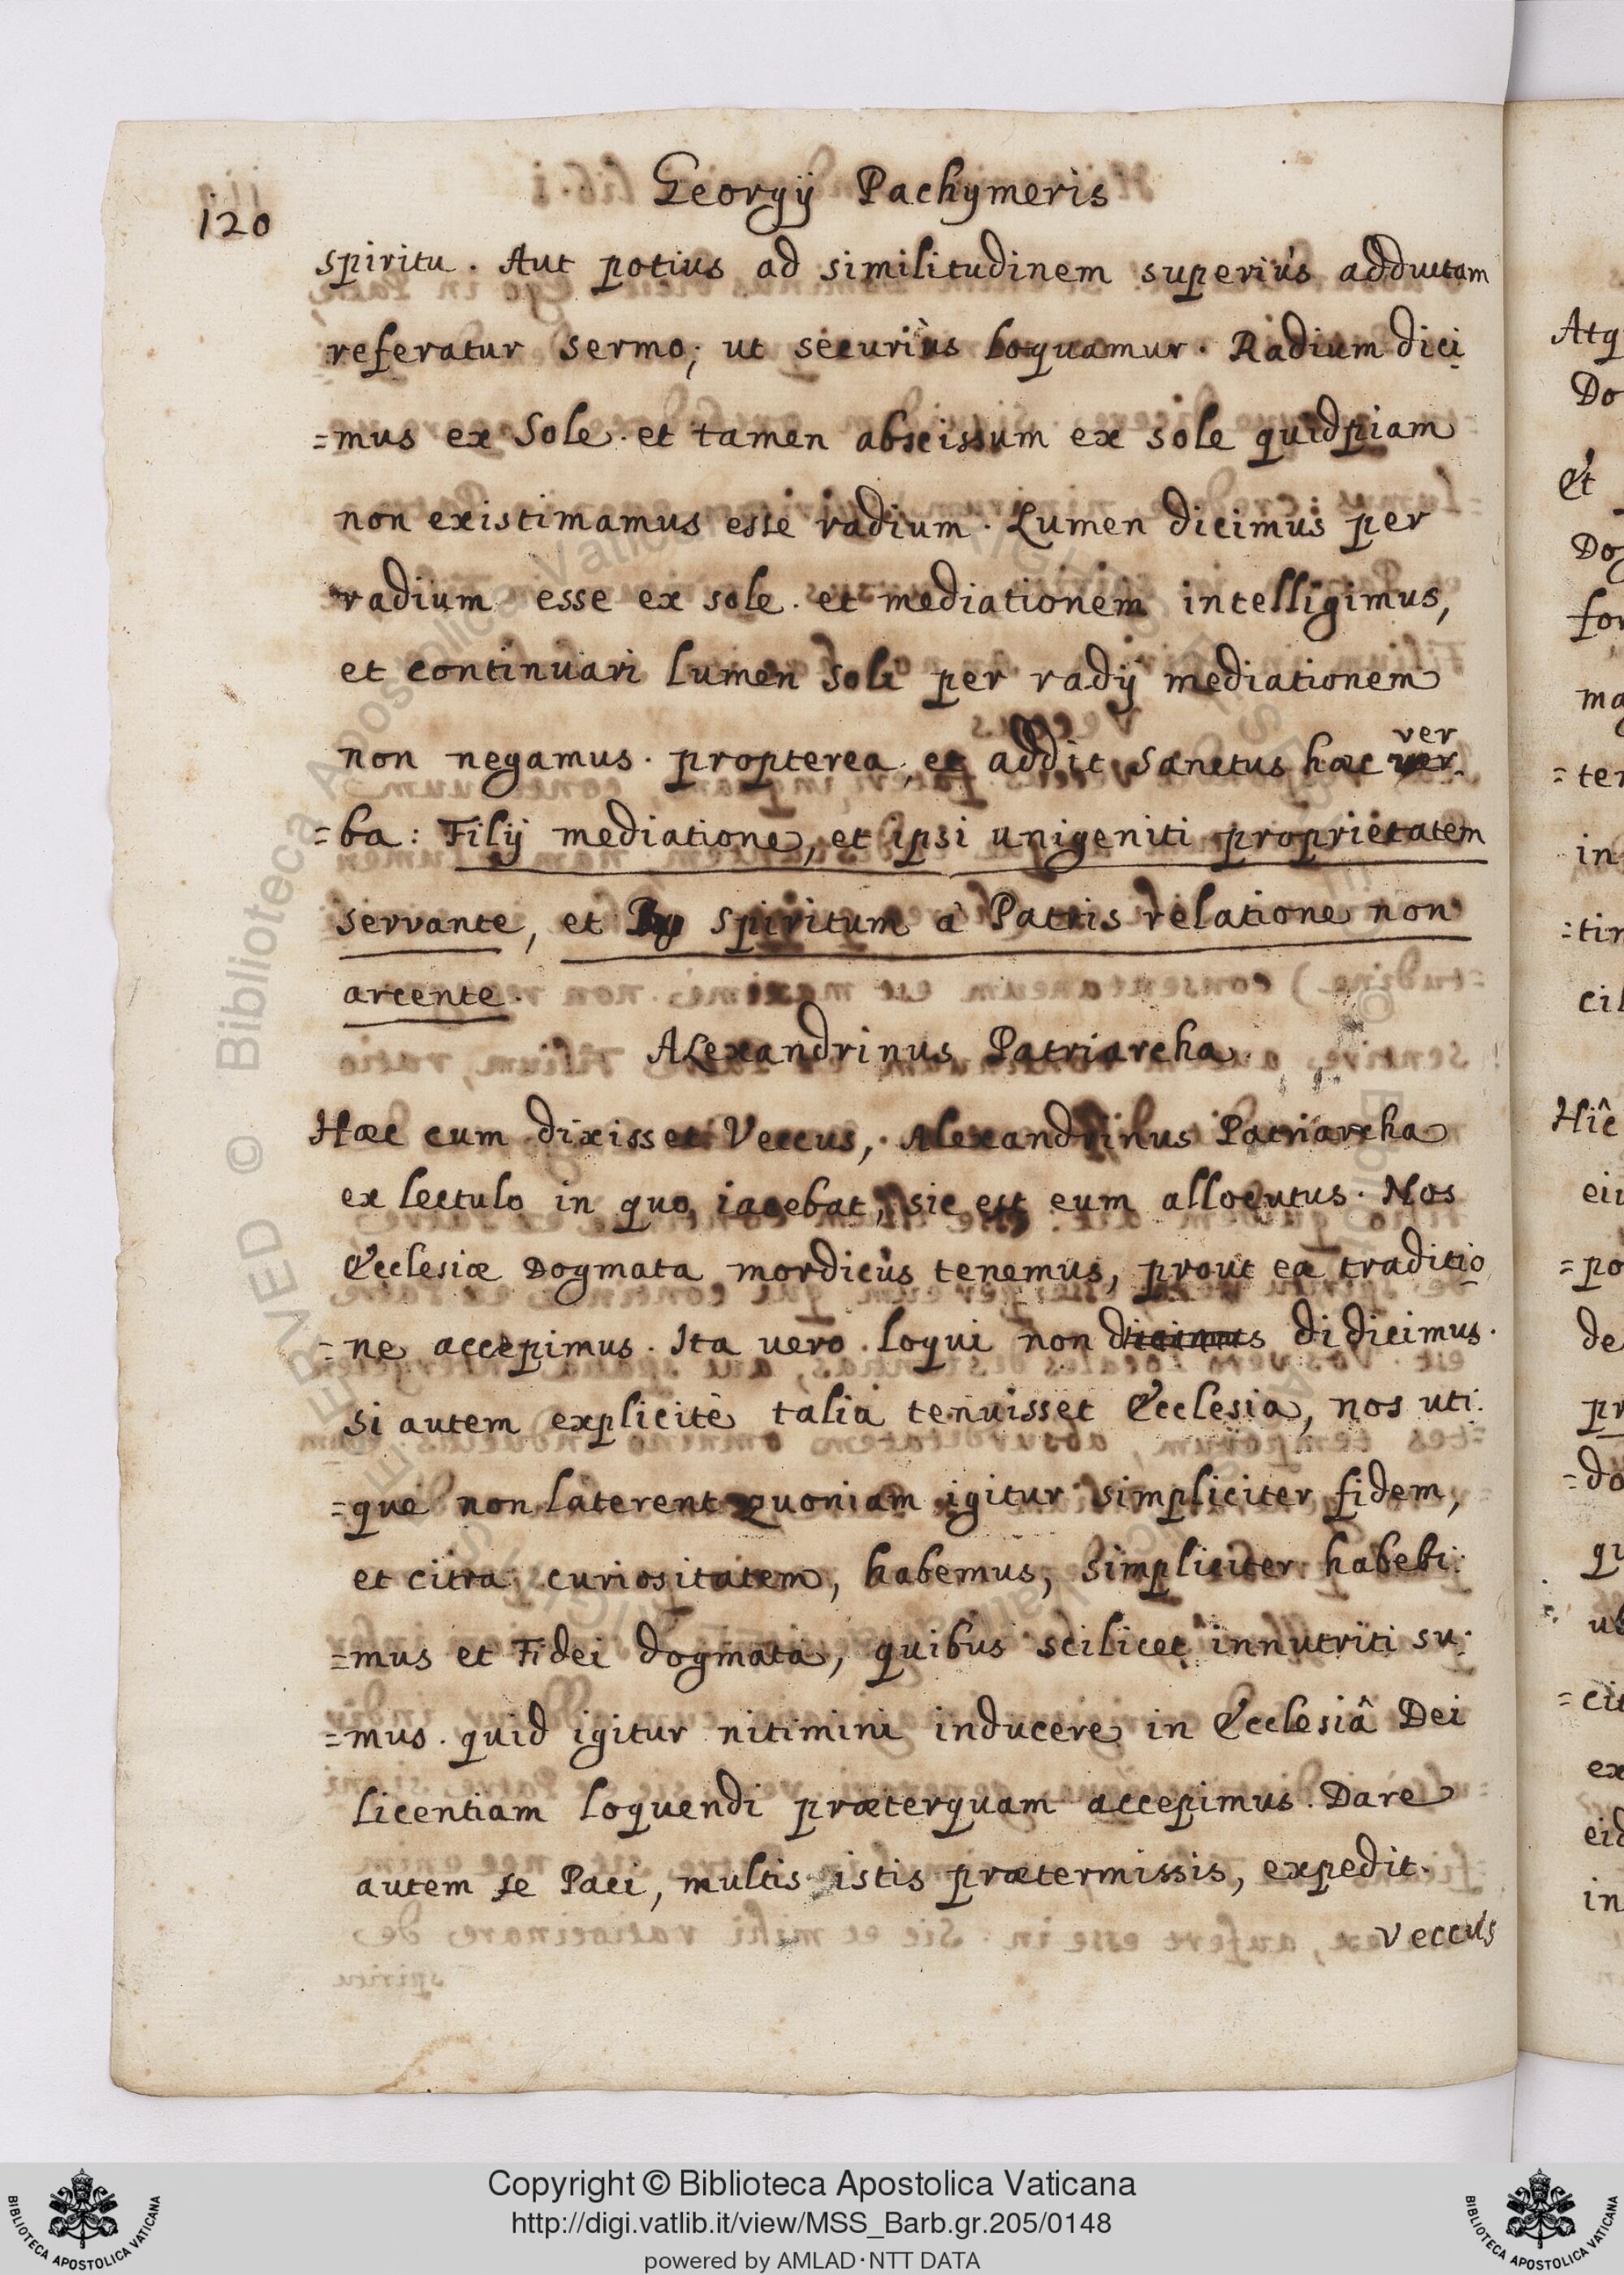 Georgij Pachymeris
120
spiritu. Aut potius ad similitudinem superiùs adductam
referatur sermo; ut securiùs loquamur. Radium dici
=mus ex Sole. et tamen abscissum ex sole quidpiam
non existimamus esse radium. Lumen dicimus per
radium esse ex sole. et mediationem intelligimus,
et continuari lumen soli per radij mediationem
non negamus. propterea, et addit Sanctus haec ver
=ba: Filij mediatione, et ipsi unigeniti proprietatem
servante, et spiritum à Patris relatione non
arcente.
Alexandrinus Patriarcha.
Haec cum dixisset Veccus, Alexandrinus Patriarcha
ex lectulo in quo iacebat, sic est eum allocutus. Nos
Ecclesiæ Dogmata mordicùs tenemus, prout ea traditio
=ne accepimus. Ita vero loqui non dicimus didicimus.
si autem explicitè talia tenuisset Ecclesia, nos uti.
=que non laterent quoniam igitur simpliciter fidem,
et citra curiositatem, habemus, simpliciter habebi.
=mus et Fidei dogmata, quibus scilicet innutriti su.
=mus. quid igitur nitimini inducere in Ecclesiâ Dei
licentiam loquendi præterquam accepimus. Dare
autem se Paci, multis istis prætermissis, expedit.
Veccus
Atq
Do
Et
Dog
for
ma
=ter
in
=tin
cil
Hîc
=po
de
pr
=do
qu
ub
=cit
ex
eid
in
Copyright © Biblioteca Apostolica Vaticana
http://digi.vatlib.it/view/MSS_Barb.gr.205/0148
powered by AMLAD·NTT DATA
BIBLIOTECA APOSTOLICA VATICANA
BIBLIOTECA APOSTOLICA VATICANA